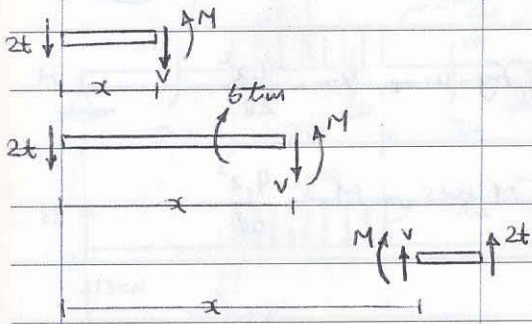 2t M
x V
5tm
2t M
V
x
M V 2t
x